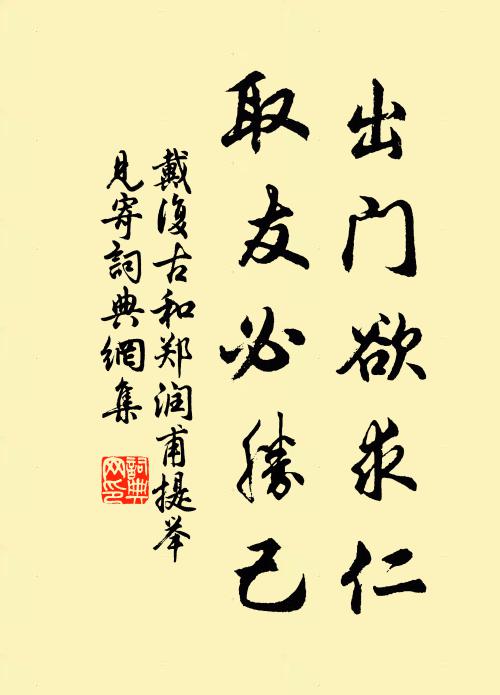 出门欲求仁
取友必勝己
戴復古和郑润甫提举
见寄詞典網集
詞典
网印